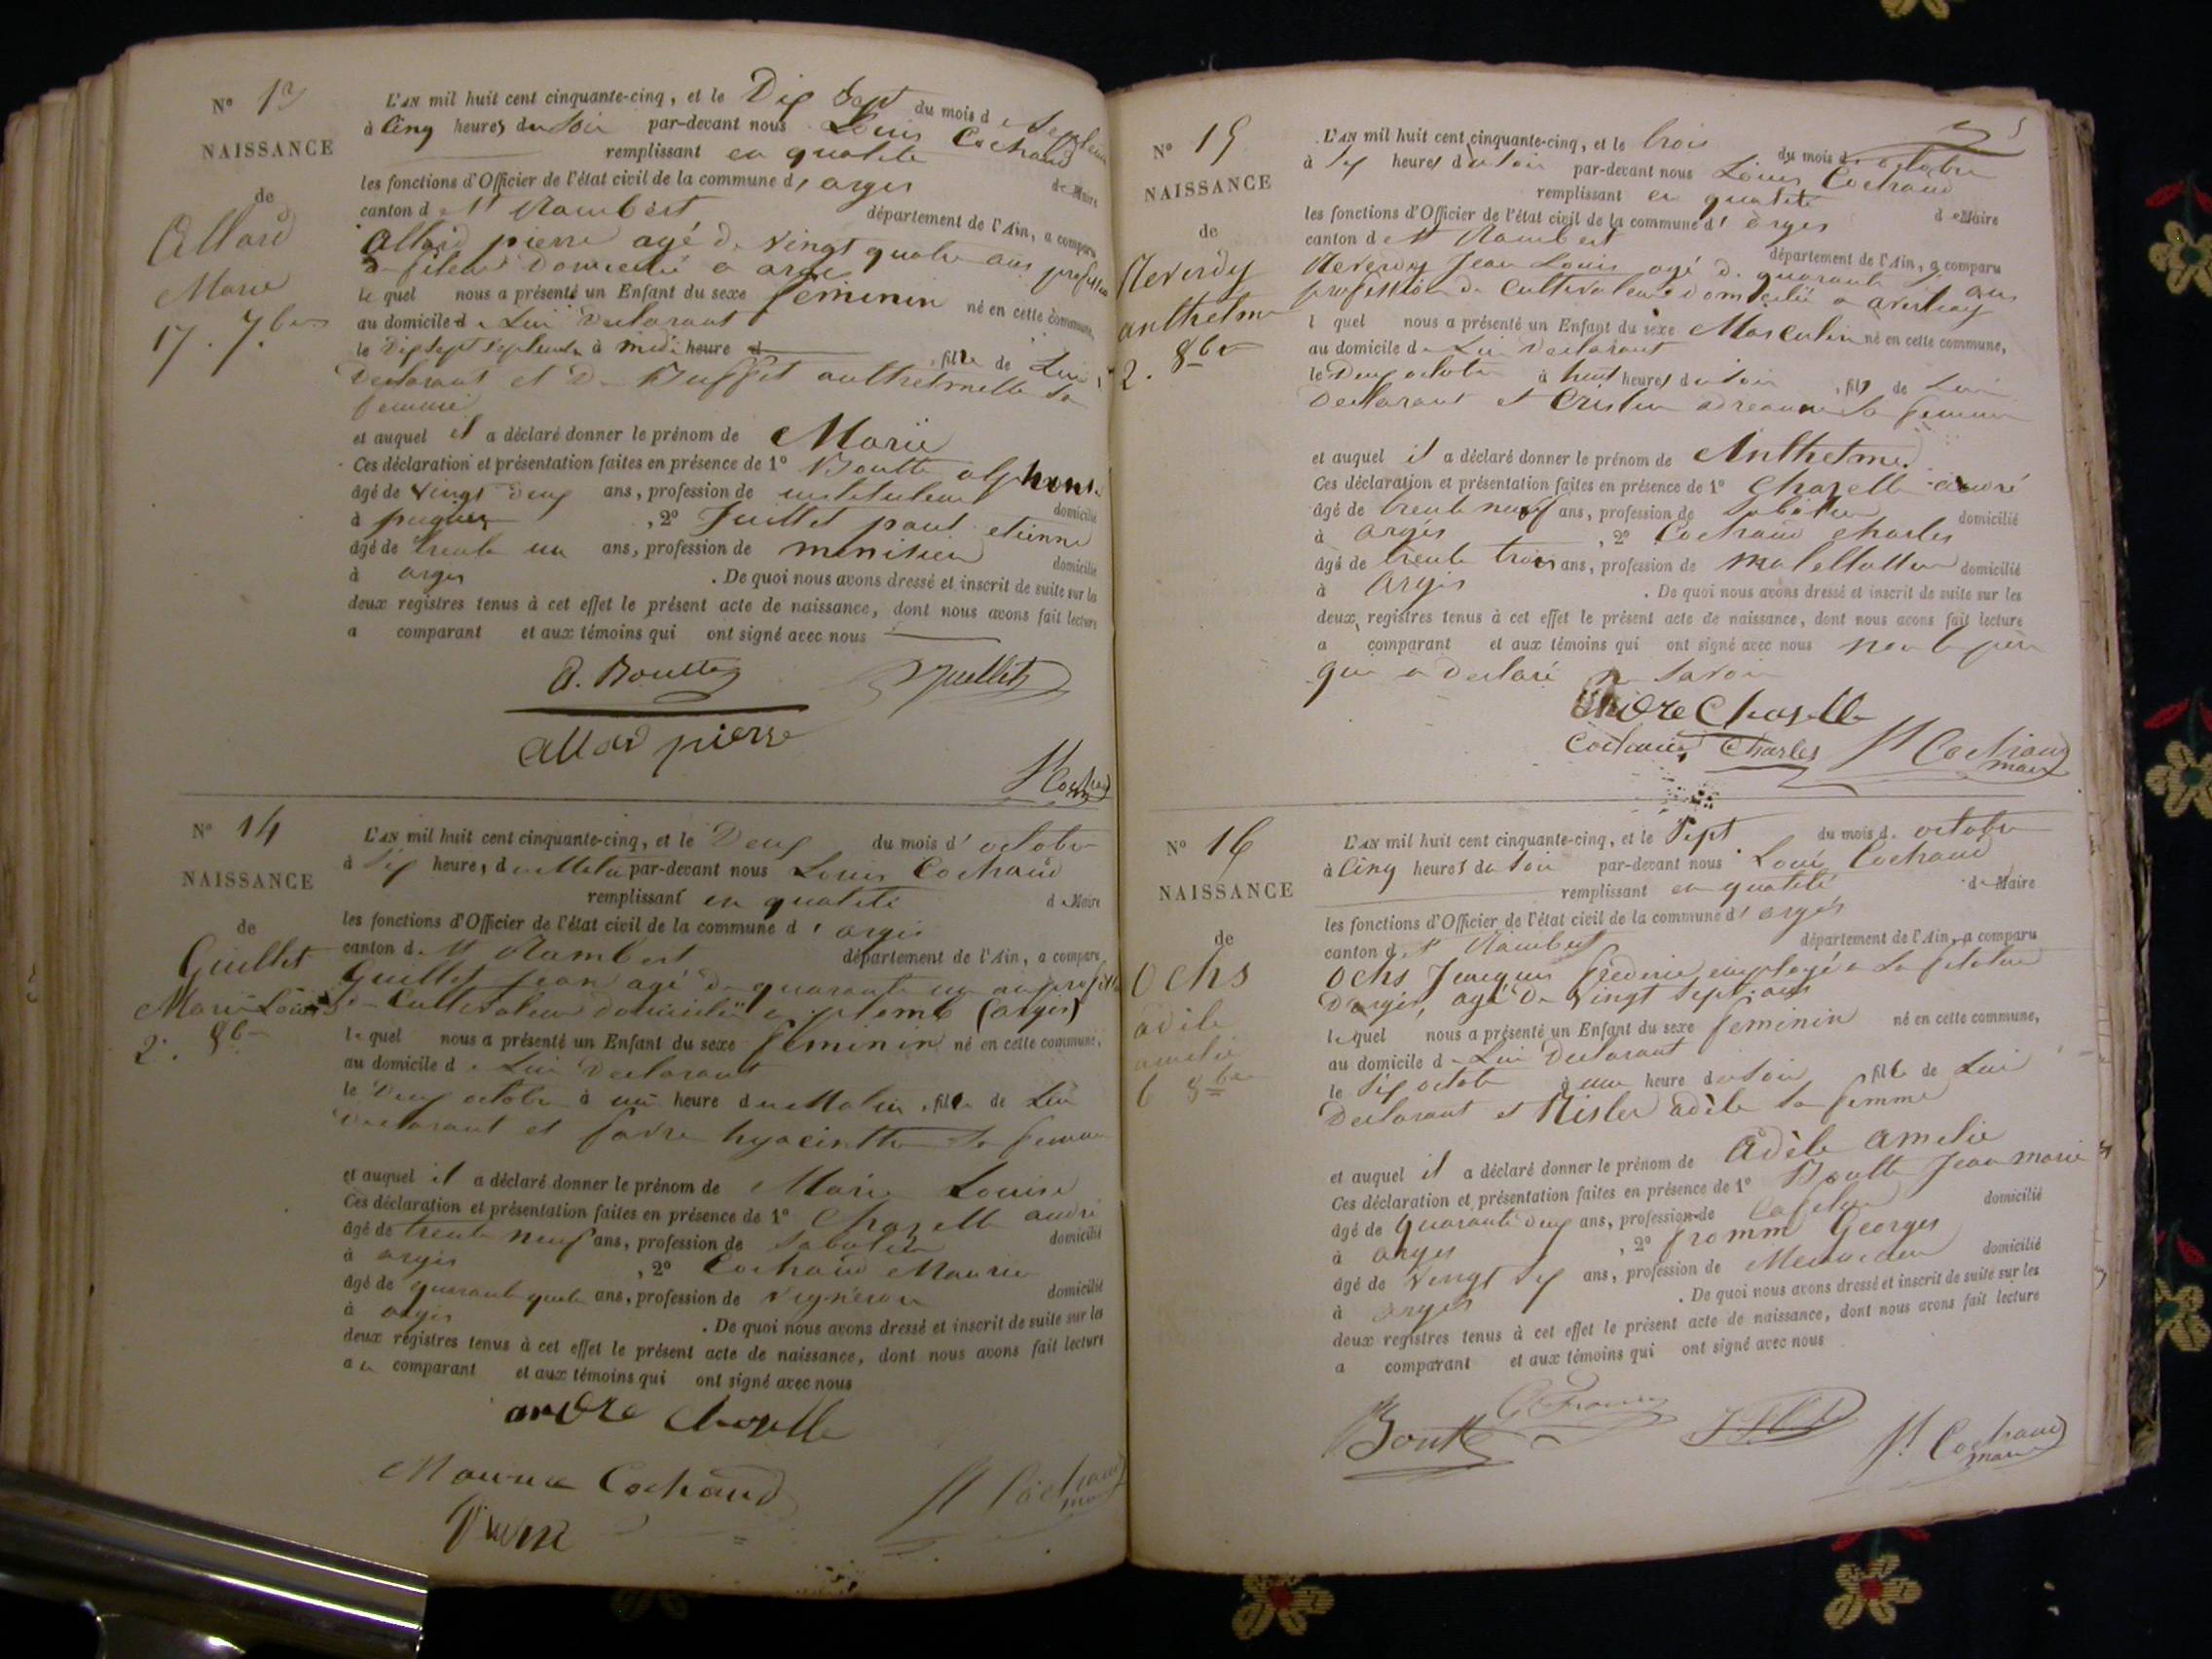 N° 13
NAISSANCE
de
Allard
Marie
17. 7bre
L'AN mil huit cent cinquante-cinq, et le Dix Sept du mois de Septembre
à Cinq heures du Soir par-devant nous Louis Cochaud
remplissant en qualité de Maire
les fonctions d'Officier de l'état civil de la commune d'argis
canton de St Rambert département de l'Ain, a comparu
Allard pierre agé de vingt quatre ans profession
de fileur Domicilié a argis
le quel nous a présenté un Enfant du sexe feminin né en cette commune,
au domicile de Lui Declarant
le Dix sept septembre à midi heure d , fille de Lui
Declarant et De Buffet anthelmette sa
femme
et auquel il a déclaré donner le prénom de Marie
Ces déclaration et présentation faites en présence de 1° Boutte alphonse
âgé de vingt deux ans, profession de instituteur domicilié
à , 2° Juillet paul etienne
âgé de trente un ans, profession de menisier domicilié
à argis . De quoi nous avons dressé et inscrit de suite sur les
deux registres tenus à cet effet le présent acte de naissance, dont nous avons fait lecture
a comparant et aux témoins qui ont signé avec nous
A. Boutte Juillet
allard pierre
St Cochaud
N° 14
NAISSANCE
de
Guillet
Marie Louise
2. 8bre
L'AN mil huit cent cinquante-cinq, et le Deux du mois d'octobre
à Six heures du Matin par-devant nous Louis Cochaud
remplissant en qualité de Maire
les fonctions d'Officier de l'état civil de la commune d'argis
canton de St Rambert département de l'Ain, a comparu
Guillet jean agé de quarante un ans profession
de Cultivateur domicilié a plomb (argis)
le quel nous a présenté un Enfant du sexe feminin né en cette commune,
au domicile de Lui Declarant
le Deux octobre à un heure du Matin , fille de Lui
Declarant et favre hyacinthe sa femme
et auquel il a déclaré donner le prénom de Marie Louise
Ces déclaration et présentation faites en présence de 1° Chapelle andré
âgé de trente neuf ans, profession de sabotier domicilié
à argis , 2° Cochaud Maurice
âgé de quarante quatre ans, profession de vigneron domicilié
à argis . De quoi nous avons dressé et inscrit de suite sur les
deux registres tenus à cet effet le présent acte de naissance, dont nous avons fait lecture
au comparant et aux témoins qui ont signé avec nous
andre Chapelle
Maurice Cochaud St Cochaud
maire
N° 15
NAISSANCE
de
Reverdy
anthelme
2. 8bre
L'AN mil huit cent cinquante-cinq, et le trois du mois d'octobre
à Six heures du Soir par-devant nous Louis Cochaud
remplissant en qualité de Maire
les fonctions d'Officier de l'état civil de la commune d'argis
canton de St Rambert département de l'Ain, a comparu
Reverdy Jean Louis agé de quarante ans
profession de Cultivateur domicilié a
l quel nous a présenté un Enfant du sexe Masculin né en cette commune,
au domicile de Lui Declarant
le Deux octobre à huit heures du soir , fils de Lui
Declarant et sa femme
et auquel il a déclaré donner le prénom de Anthelme.
Ces déclaration et présentation faites en présence de 1° Chapelle andré
âgé de trente neuf ans, profession de Sabotier domicilié
à argis , 2° Cochaud charles
âgé de trente trois ans, profession de domicilié
à Argis . De quoi nous avons dressé et inscrit de suite sur les
deux registres tenus à cet effet le présent acte de naissance, dont nous avons fait lecture
a comparant et aux témoins qui ont signé avec nous non le père
qui a declaré ne savoir
Andre Chapelle
Cochaud Charles St Cochaud
maire
N° 16
NAISSANCE
de
Ochs
adèle
amelie
6 8bre
L'AN mil huit cent cinquante-cinq, et le Sept du mois d. octobre
à Cinq heures du soir par-devant nous Louis Cochaud
remplissant en qualité de Maire
les fonctions d'Officier de l'état civil de la commune d'argis
canton de St Rambert département de l'Ain, a comparu
Ochs Jacques frederic employé a La filature
D'argis, agé De Vingt Sept ans
le quel nous a présenté un Enfant du sexe feminin né en cette commune,
au domicile de Lui Declarant
le Six octobre à une heure du Soir fille de Lui
Declarant et Risler adèle sa femme
et auquel il a déclaré donner le prénom de Adèle amelie
Ces déclaration et présentation faites en présence de 1° Boutte Jean marie
âgé de Quarante deux ans, profession de domicilié
à Argis , 2° fromm Georges
âgé de Vingt Six ans, profession de domicilié
à argis . De quoi nous avons dressé et inscrit de suite sur les
deux registres tenus à cet effet le présent acte de naissance, dont nous avons fait lecture
a comparant et aux témoins qui ont signé avec nous
Boutte G Fromm St Cochaud
maire